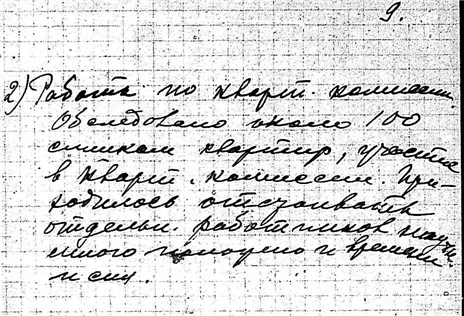 9.
2) Работа по кварт. комиссии.
Обследовано около 100
слишком квартир, участие
в кварт. комиссии. При-
ходилось отстаивать
отдельн. работников научн.
много и времени
и сил.